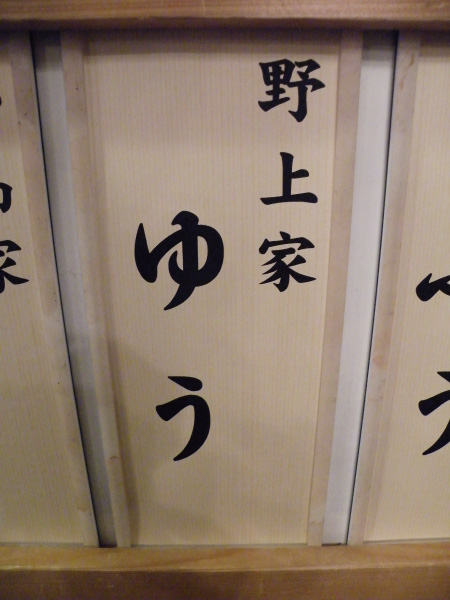 野上家
ゆう